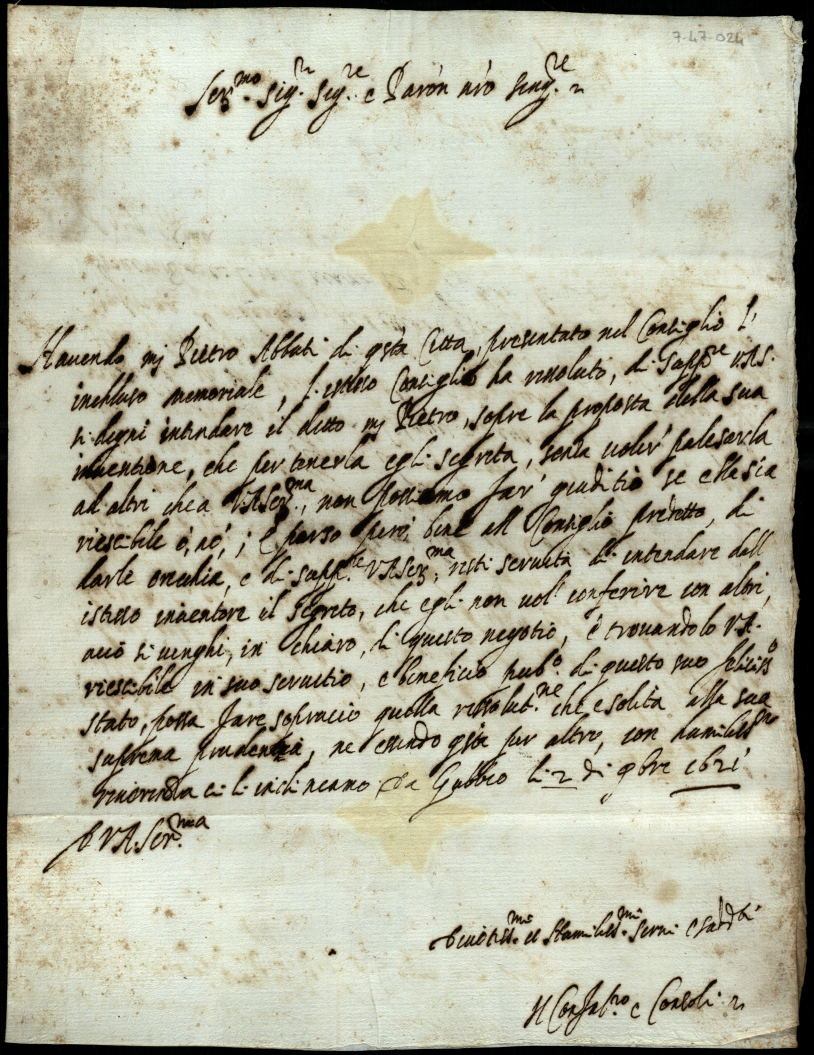 7-47-024
Ser.mo Sig.r Sig.re e Paron nro sing.re
Havendo mj Pietro Abbati di qsta Citta, presentato nel Consiglio l'
inchluso memoriale, l'istesso Consiglio ha rissoluto, di supp.re V.A.S.
si degni intendare il detto mj Pietro, sopre la proposta della sua
inventione, che per tenerla egli segreta, senza voler' palesarla
ad altri che a V.A.Ser.ma, non possiamo far' giuditio se ella sia
riescibile ò, nò, ; è, parso però, bene all Consiglio predetto, di
darle orechia, e di supp.re V.A.Ser.ma, resti servita di intendare dall
istesso inventore il segreto, che egli non vol' conferire con altri,
acciò si venghi, in chiaro, di questo negotio, è trovandolo V.A.
riescibile in suo servitio, e beneficio pub.o di questo suo feliciss.o
stato, possa fare sopraciò quella rissolut.ne che è solita alla sua
suprema prudenza, ne essendo qsta per altro, con humiliss.ma
riverenza ci li inchineamo Da Gubbio li 2 di 9bre 1621
D V.A.Ser.ma
Devotiss.mi et Humiliss.mi servi e
Il Confal.ro e Consoli